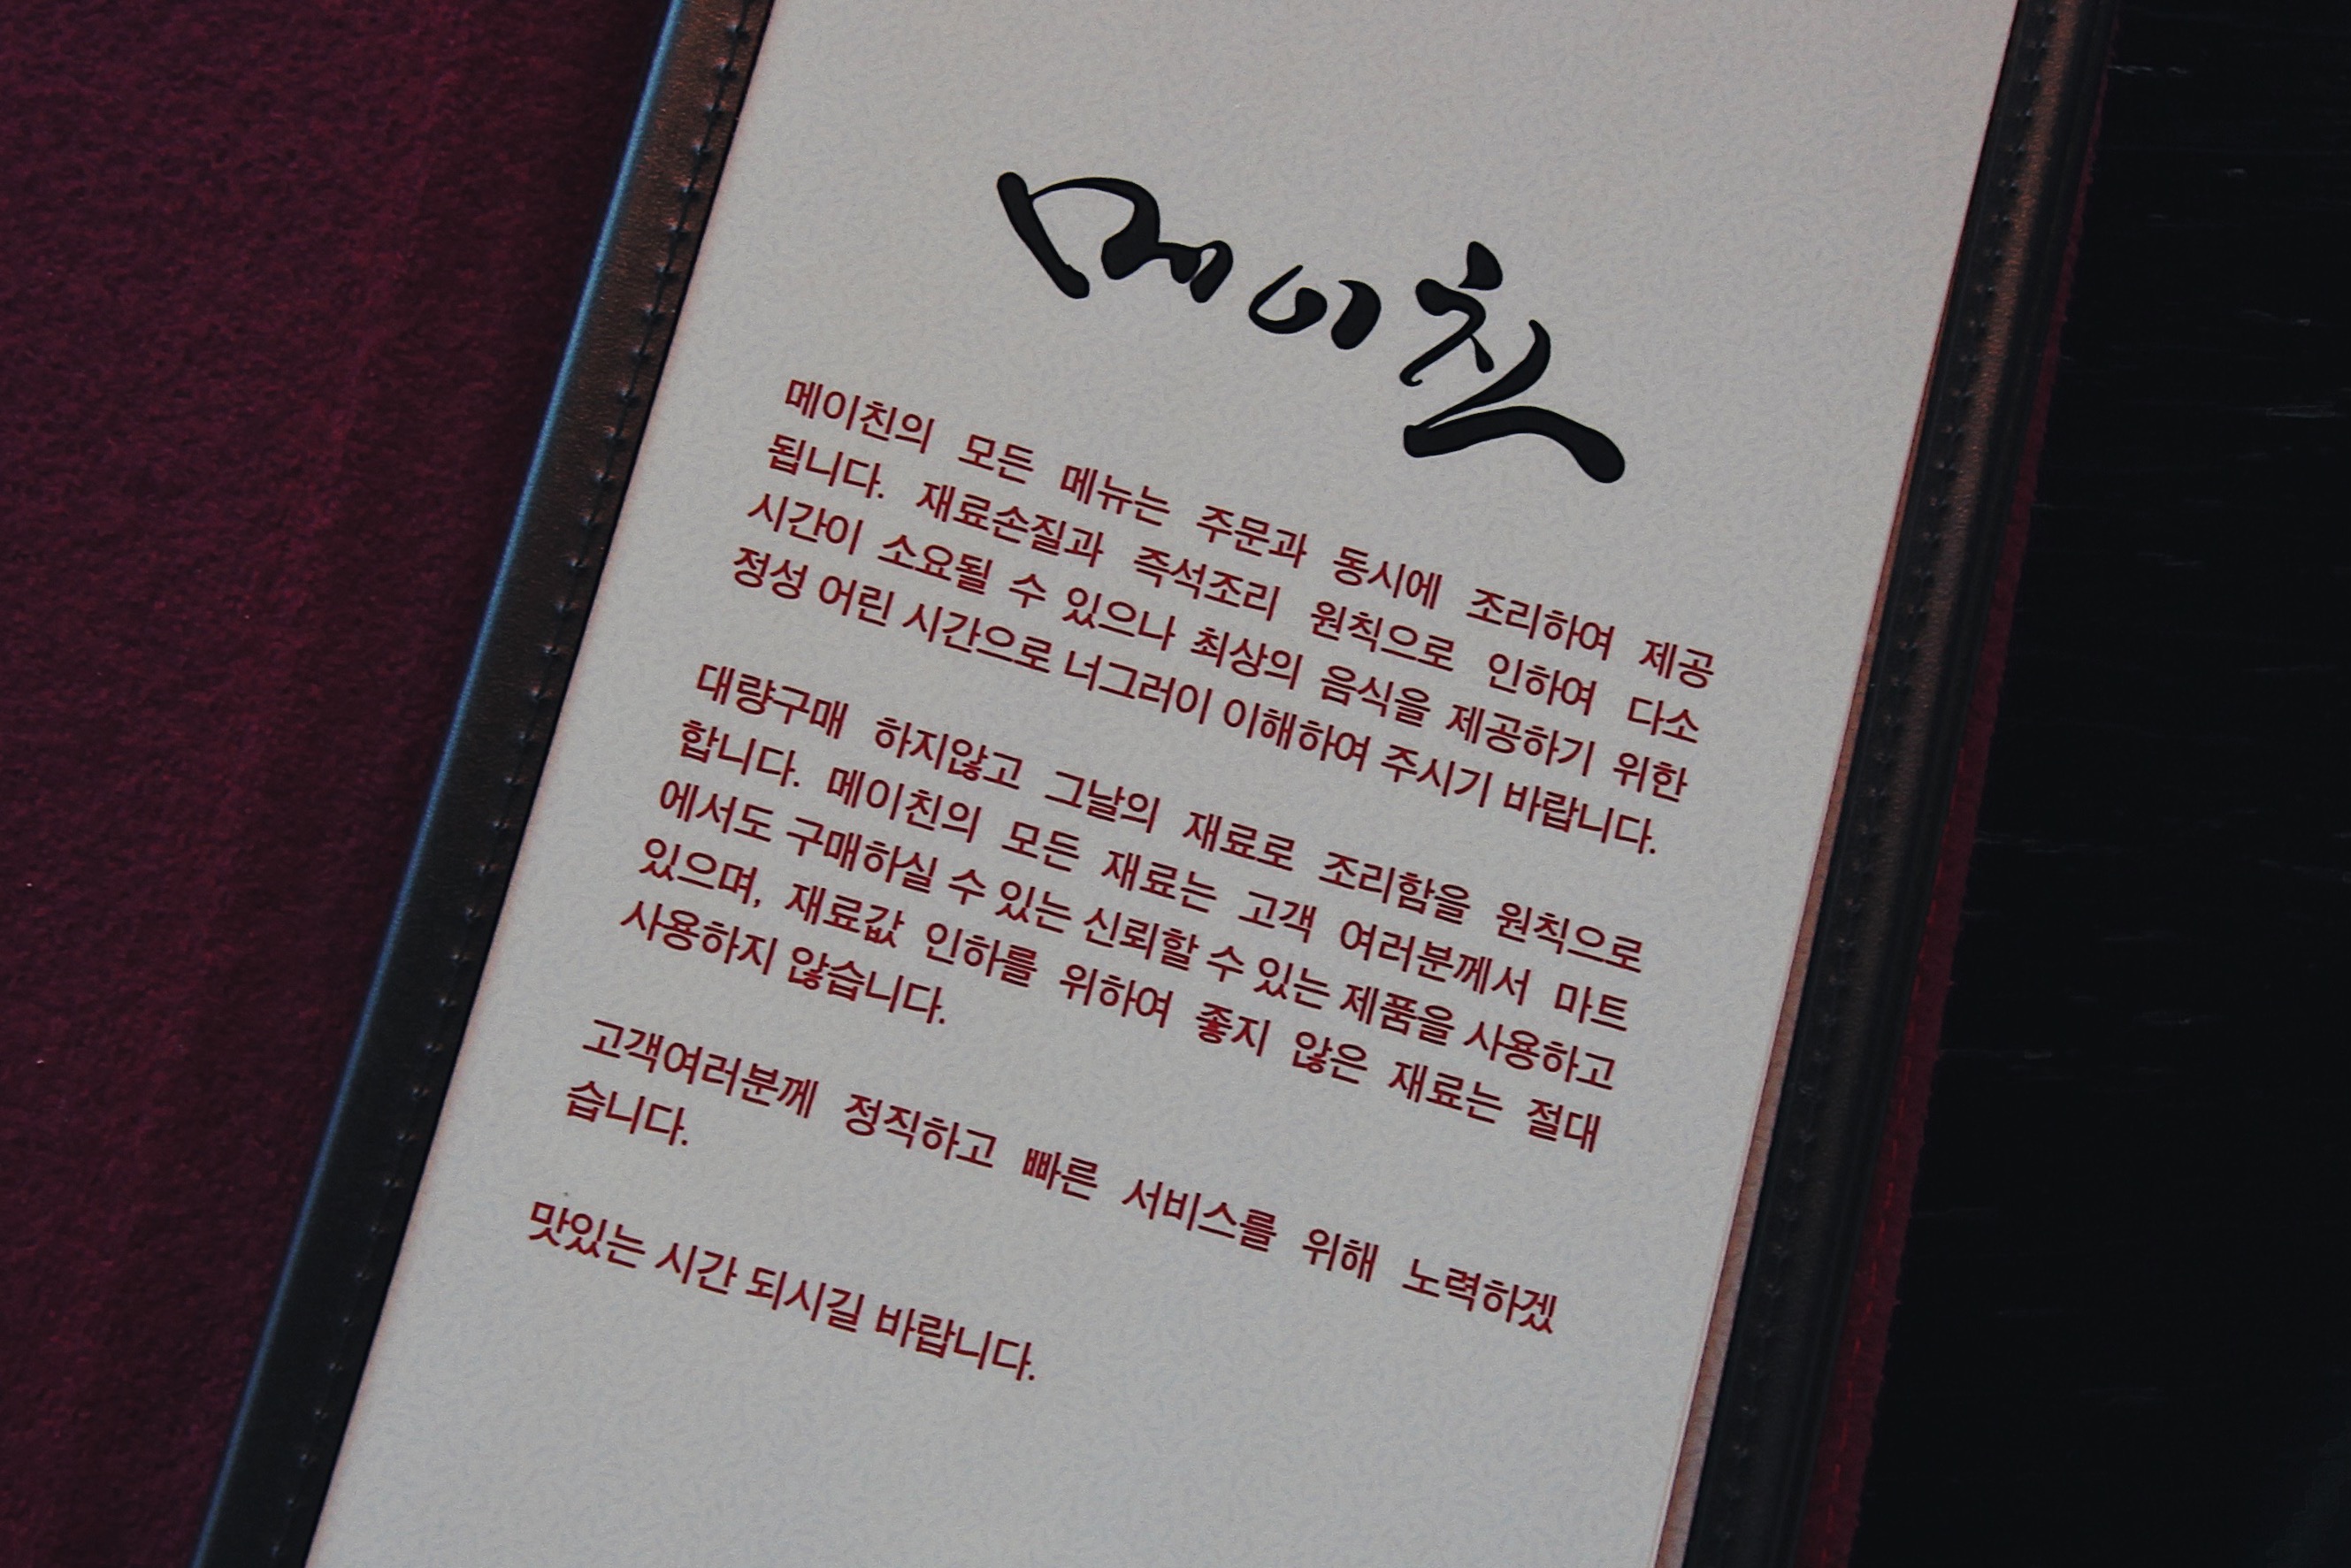 메이친
메이친의 모든 메뉴는 주문과 동시에 조리하여 제공
됩니다. 재료손질과 즉석조리 원칙으로 인하여 다소
시간이 소요될 수 있으나 최상의 음식을 제공하기 위한
정성 어린 시간으로 너그러이 이해하여 주시기 바랍니다.
대량구매 하지않고 그날의 재료로 조리함을 원칙으로
합니다. 메이친의 모든 재료는 고객 여러분께서 마트
에서도 구매하실 수 있는 신뢰할 수 있는 제품을 사용하고
있으며, 재료값 인하를 위하여 좋지 않은 재료는 절대
사용하지 않습니다.
고객여러분께 정직하고 빠른 서비스를 위해 노력하겠
습니다.
맛있는 시간 되시길 바랍니다.